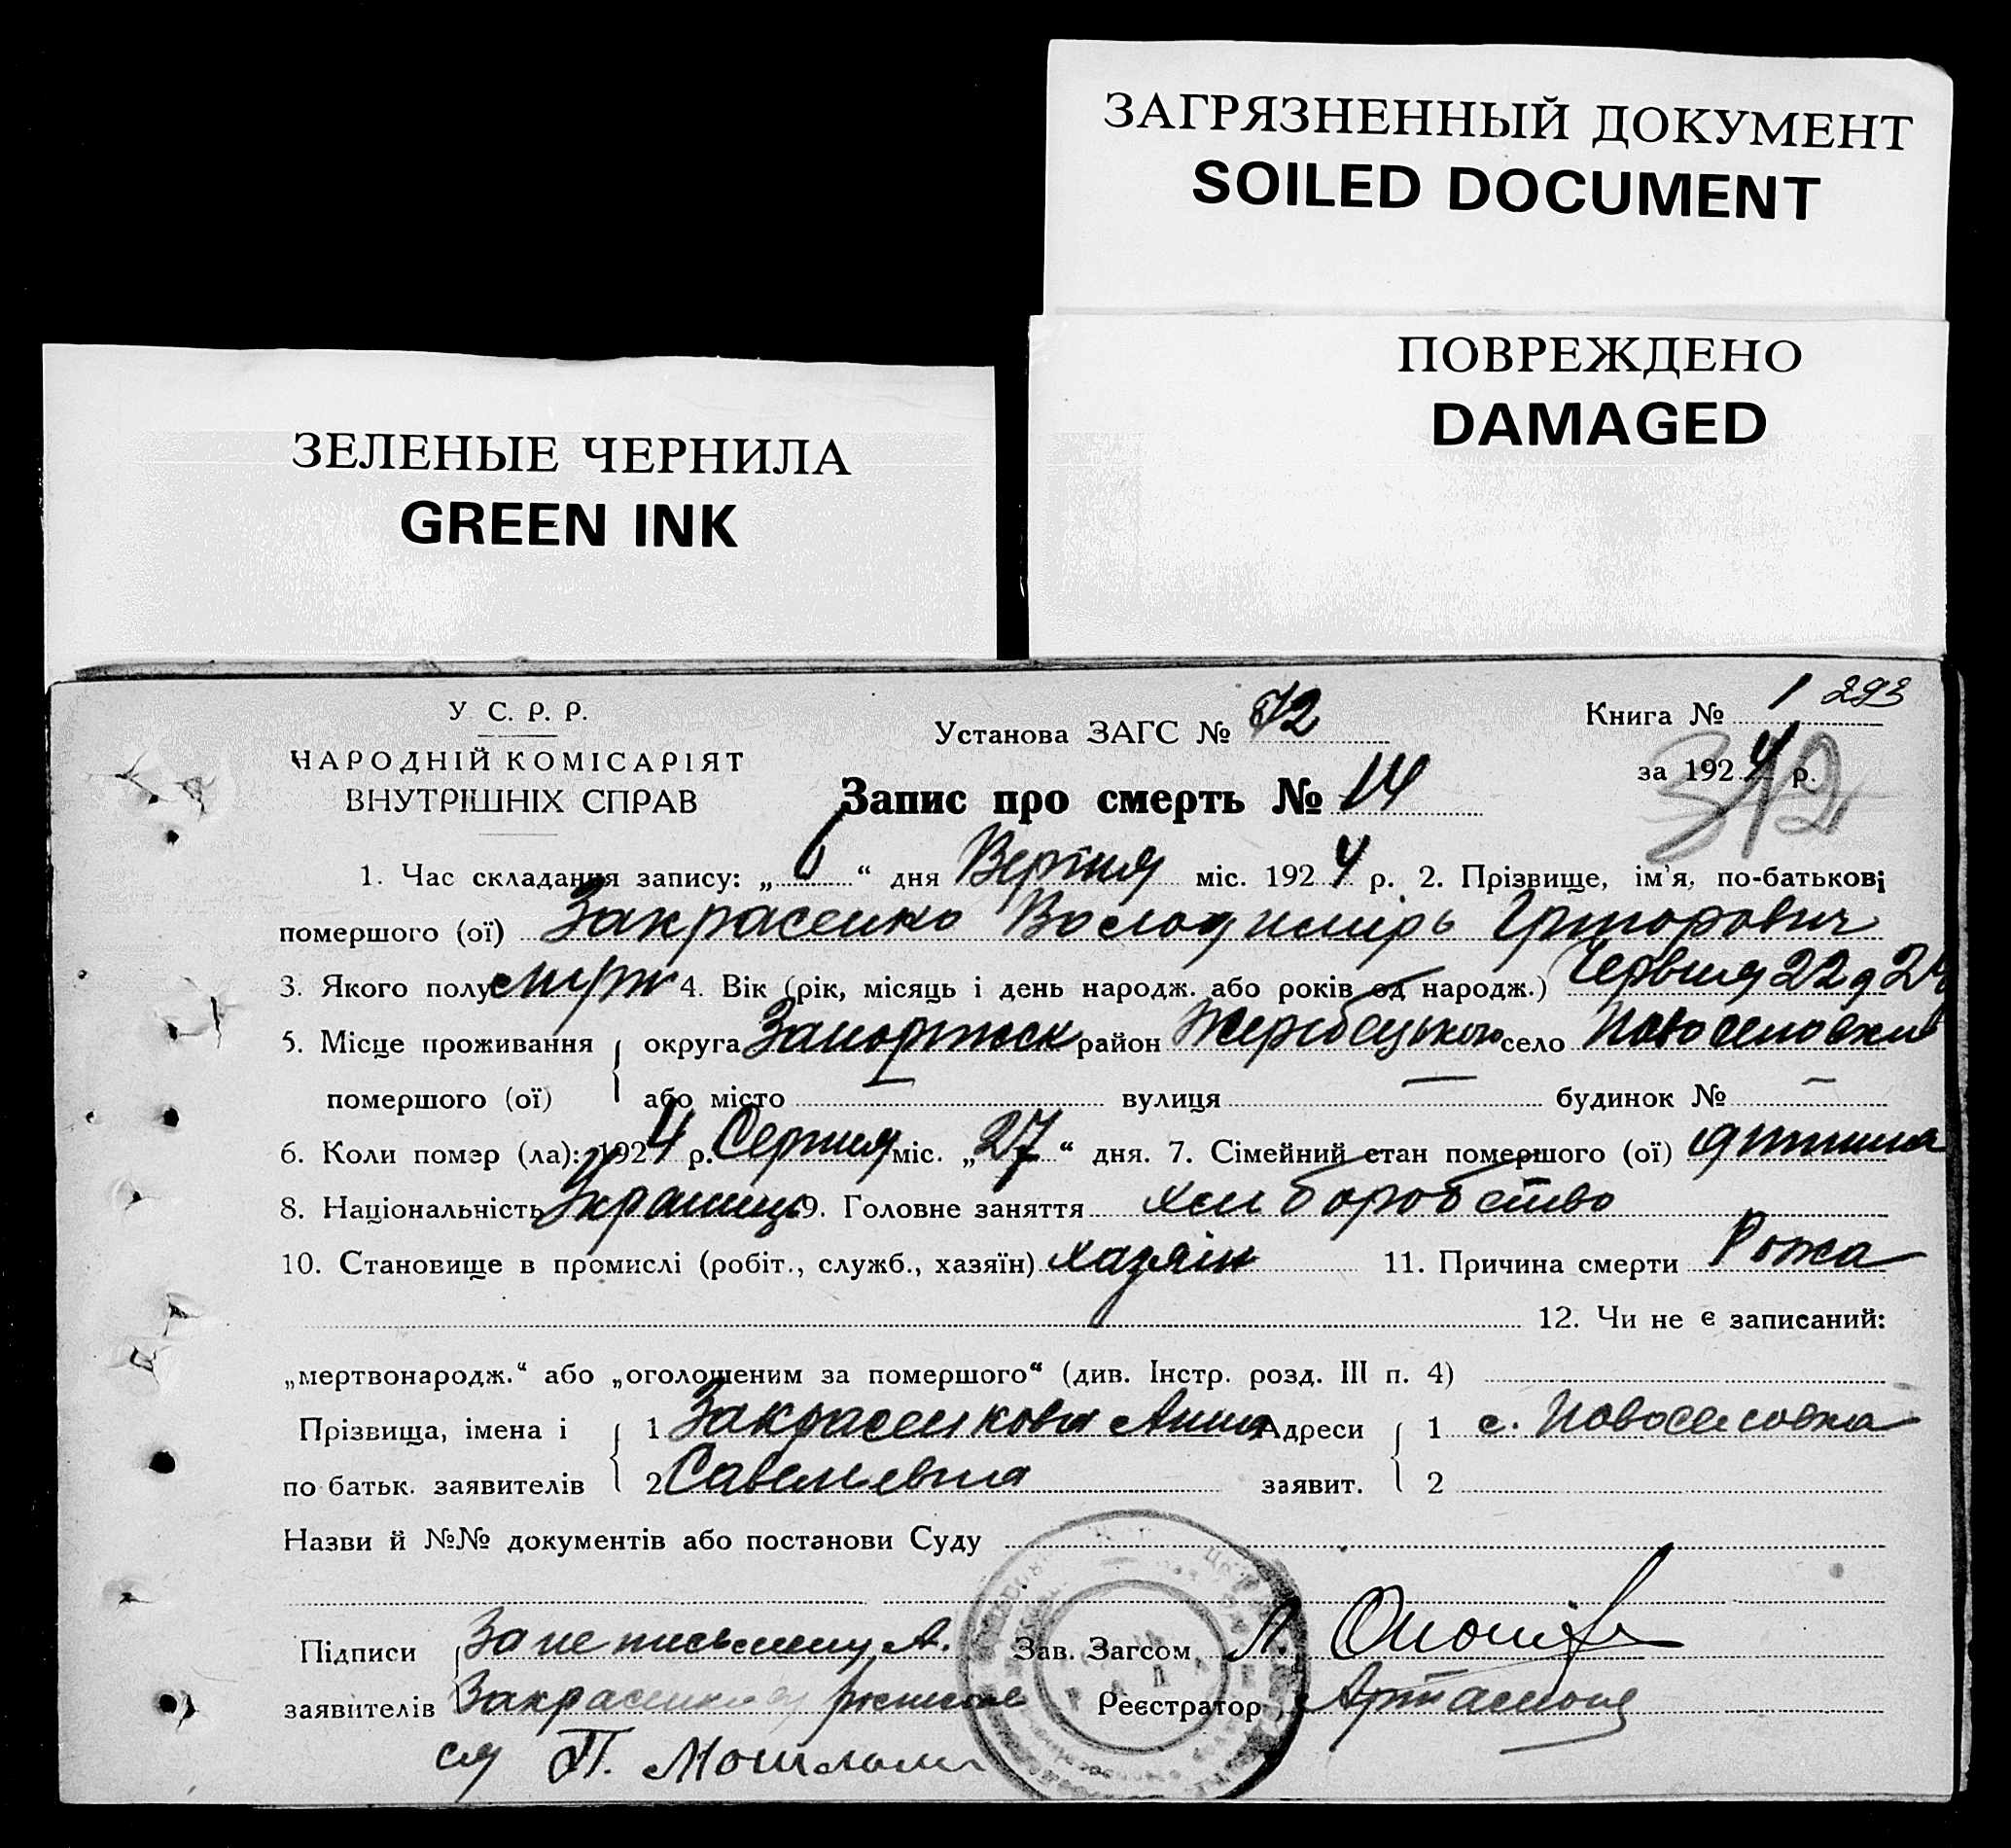 ЗАГРЯЗНЕННЫЙ ДОКУМЕНТ
SOILED DOCUMENT
ПОВРЕЖДЕНО
DAMAGED
ЗЕЛЕНЫЕ ЧЕРНИЛА
GREEN INK
У С. Р. Р.
НАРОДНІЙ КОМІСАРІЯТ
ВНУТРІШНІХ СПРАВ
Установа ЗАГС № 72
Запис про смерть № 14
Книга № 1 293
за 1924 р.
312
1. Час складання запису: „ 6 “ дня Вересня міс. 1924 р. 2. Прізвище, ім'я, по-батькові
помершого (ої) Закрасенко Володимірь Григорович
3. Якого полу 4. Вік (рік, місяць і день народж. або років од народж.) Червня 22 д 24
5. Місце проживання округа Запоріжск район Жеребецького село Новоселовки
помершого (ої) або місто — вулиця — будинок № —
6. Коли помер (ла): 1924 р. Серпня міс. „ 27 “ дня. 7. Сімейний стан помершого (ої) дитина
8. Національність Українец 9. Головне заняття хліборобство
10. Становище в промислі (робіт., служб., хазяїн) хазяін 11. Причина смерти Рожа
12. Чи не є записаний:
„мертвонародж.“ або „оголошеним за помершого“ (див. Інстр. розд. III п. 4)
Прізвища, імена і 1 Закрасенкова Анна Адреси 1 с. Новоселовка
по батьк. заявителів 2 Савелевна заявит. 2
Назви й №№ документів або постанови Суду
Підписи За не письменну А. Зав. Загсом
заявителів Закрасенкову росписав Реєстратор
ся П.